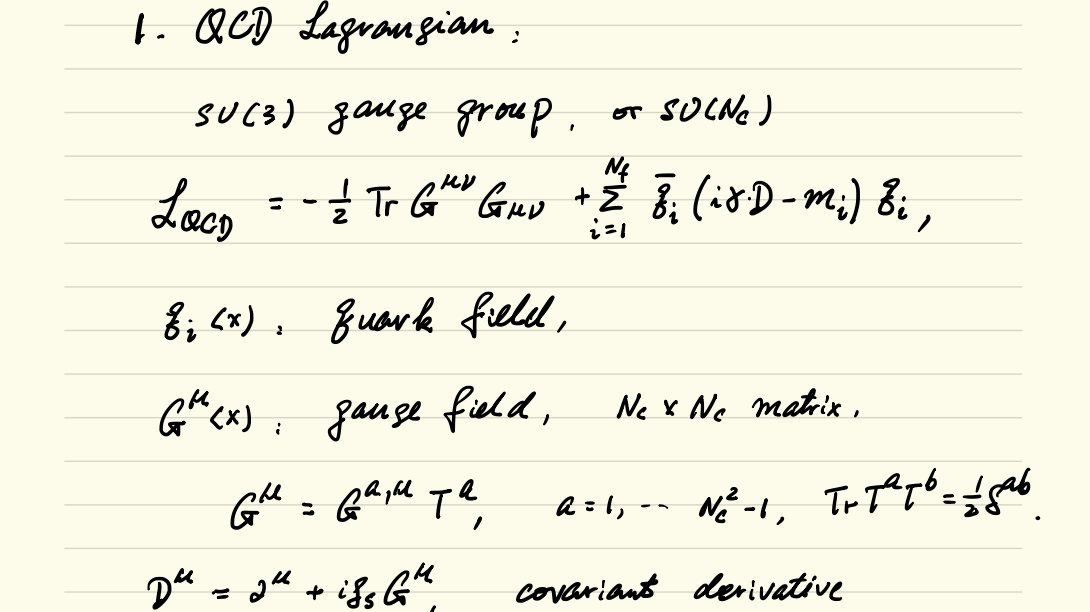 1. QCD Lagrangian:
SU(3) gauge group, or SU(N_c)
L_QCD = -1/2 Tr G^{μν} G_{μν} + Σ_{i=1}^{N_f} q̄_i (iγ·D - m_i) q_i,
q_i(x): quark field,
G^μ(x): gauge field, N_c × N_c matrix.
G^μ = G^{a,μ} T^a, a = 1, ... N_c^2 - 1, Tr T^a T^b = 1/2 δ^{ab}.
D^μ = ∂^μ + i g_s G^μ, covariant derivative